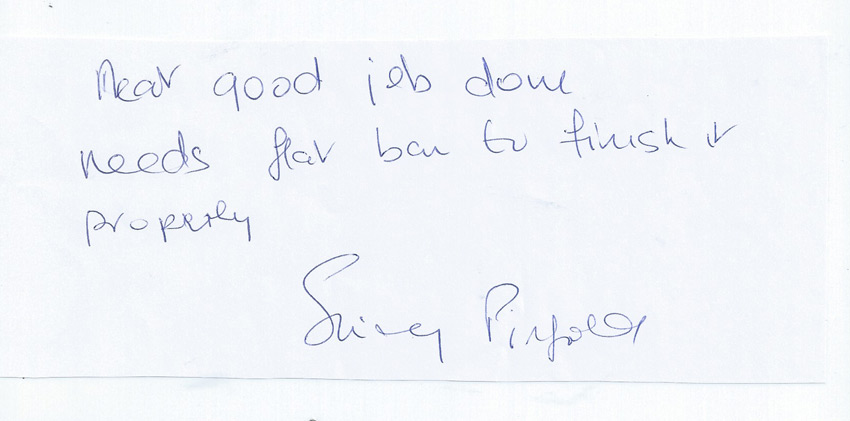 Neat good job done
needs flat bar to finish it
properly